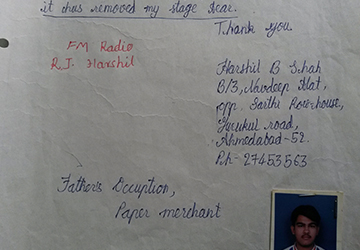 it thus removed my stage fear.
Thank you
FM Radio
R.J. Harshil
Harshil B Shah
B/3, Navdeep flat,
opp. Sarthi Rowhouse,
Gurukul road,
Ahmedabad-52.
Ph- 27453563
Father's Occuption,
Paper merchant